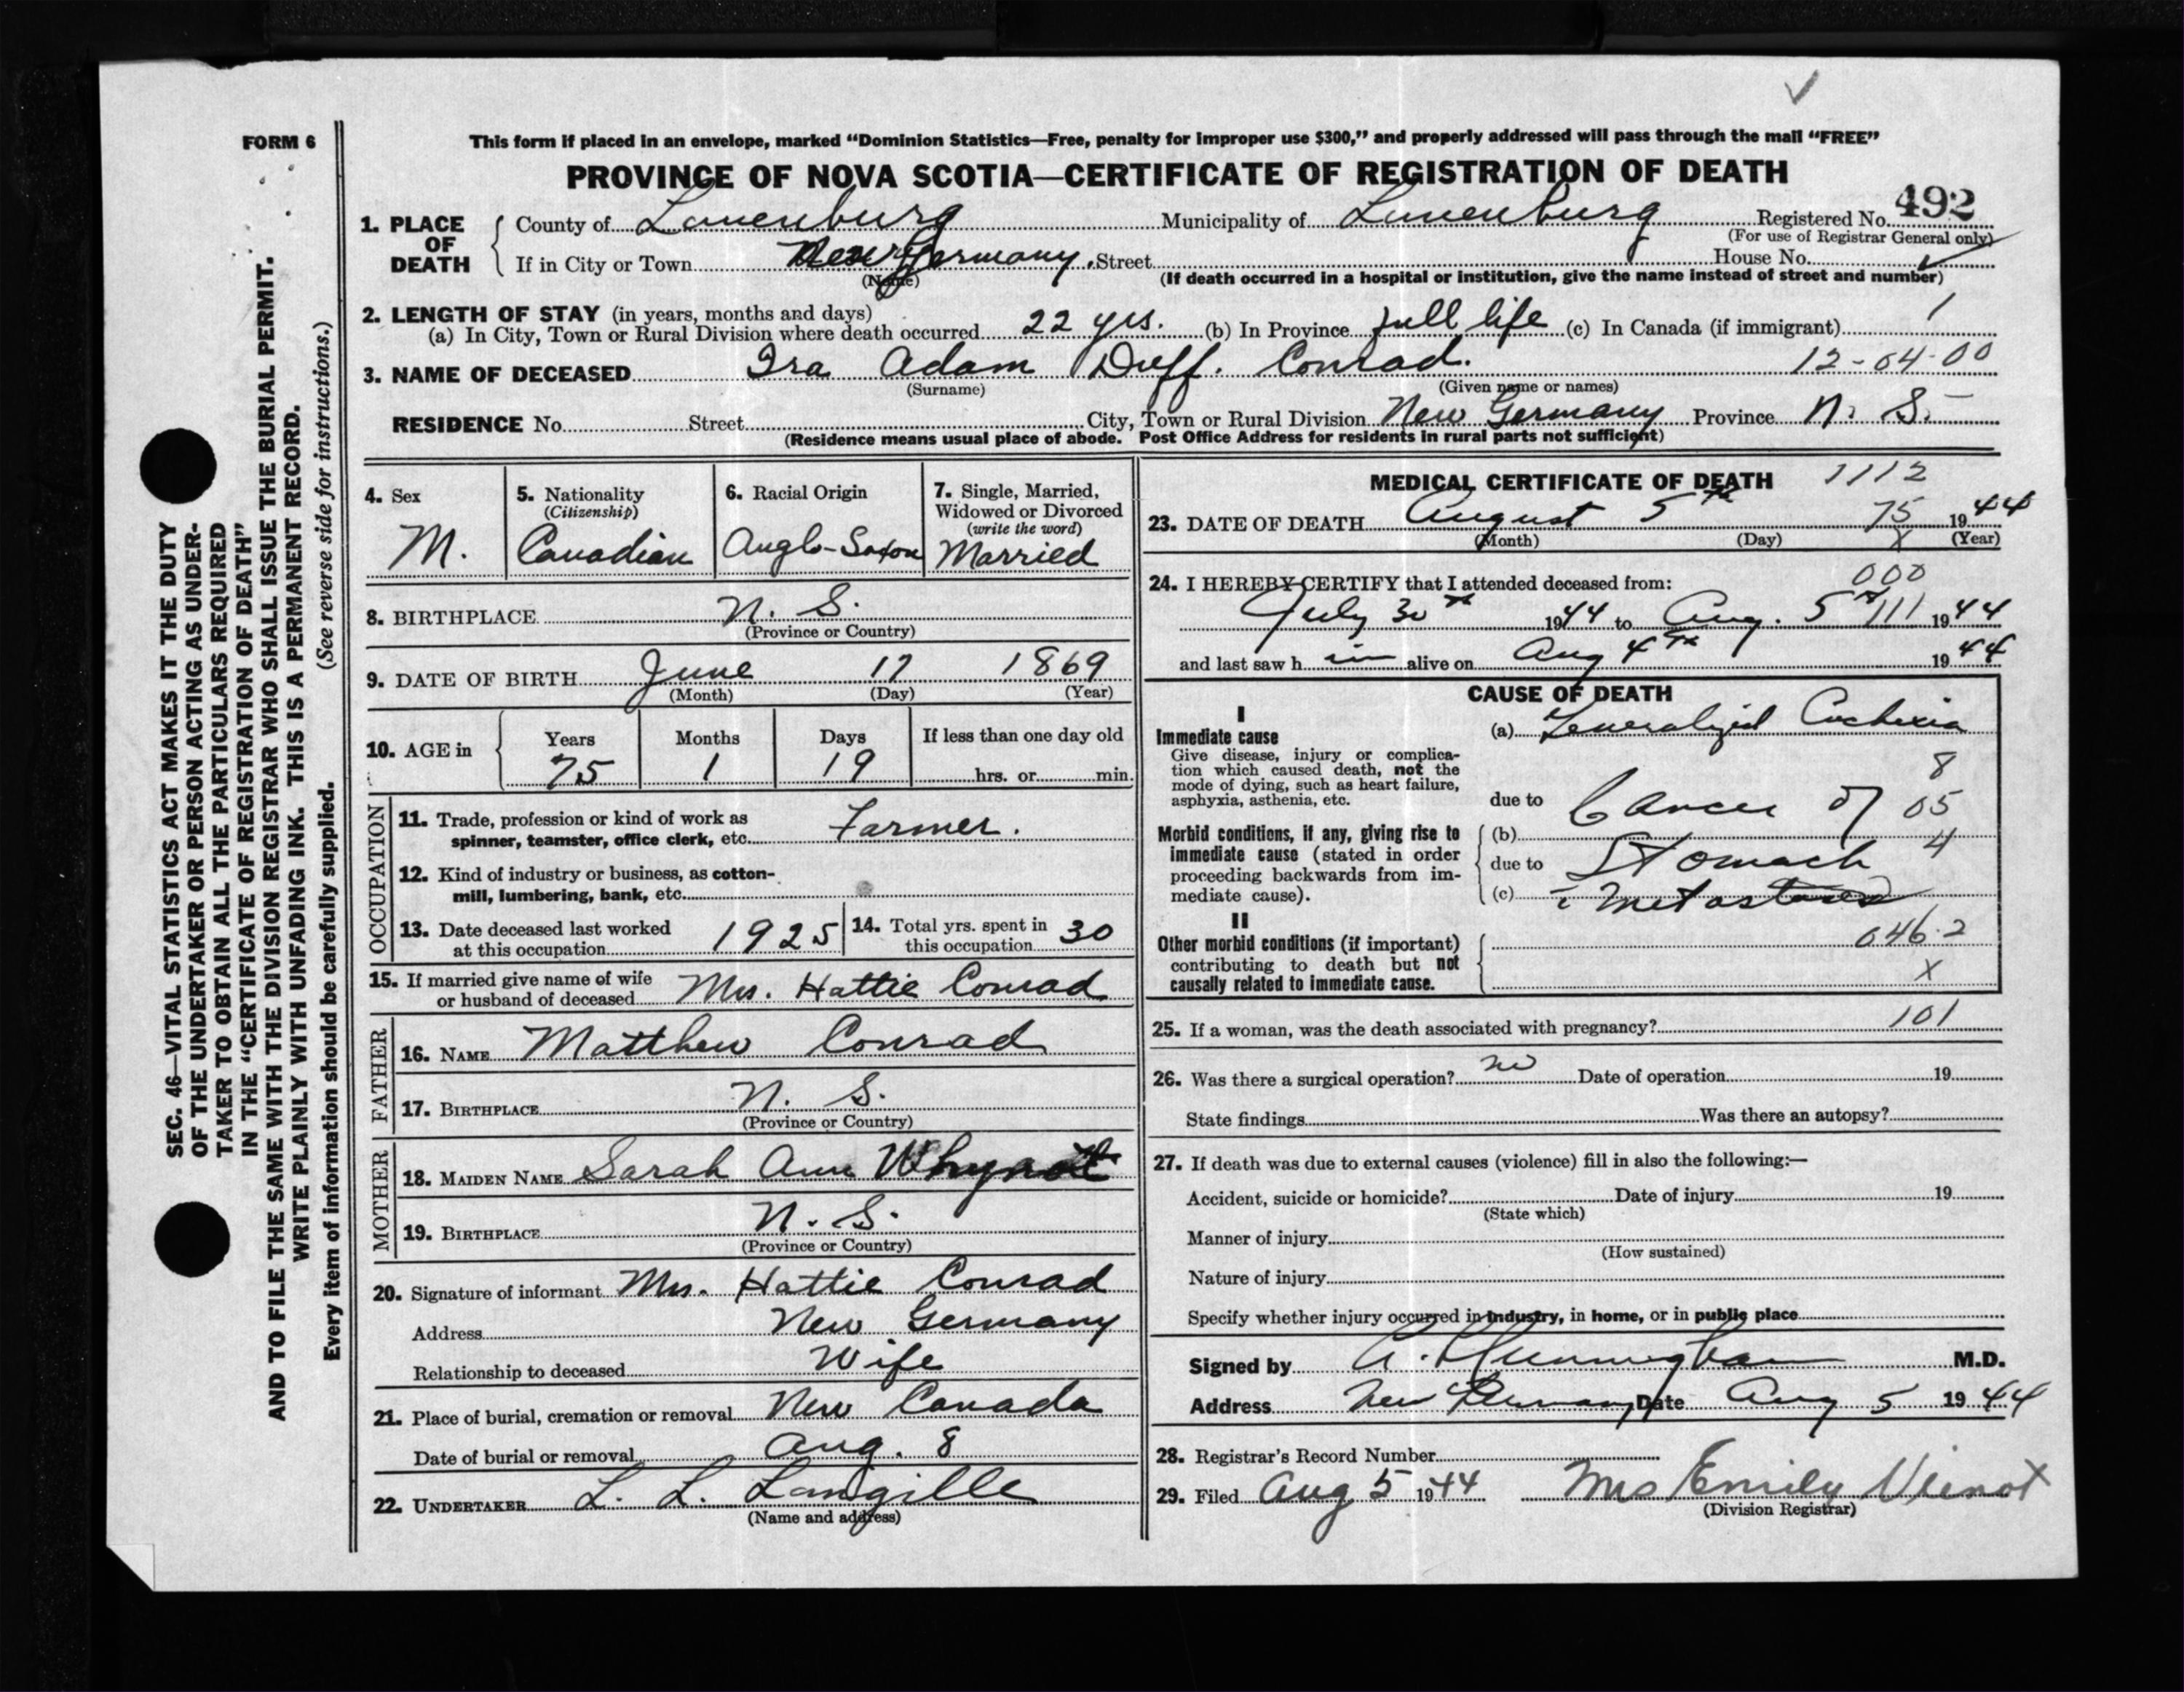 FORM 6
This form if placed in an envelope, marked “Dominion Statistics—Free, penalty for improper use $300,” and properly addressed will pass through the mail “FREE”
PROVINCE OF NOVA SCOTIA—CERTIFICATE OF REGISTRATION OF DEATH
1. PLACE OF DEATH
County of Lunenburg Municipality of Lunenburg Registered No. 492
(For use of Registrar General only)
If in City or Town New Germany. Street House No.
(Name) (If death occurred in a hospital or institution, give the name instead of street and number)
2. LENGTH OF STAY (in years, months and days)
(a) In City, Town or Rural Division where death occurred 22 yrs. (b) In Province full life (c) In Canada (if immigrant) 1
3. NAME OF DECEASED Ira Adam Duff. Conrad. 12-04-00
(Surname) (Given name or names)
RESIDENCE No. Street City, Town or Rural Division New Germany Province N. S.
(Residence means usual place of abode. Post Office Address for residents in rural parts not sufficient)
4. Sex
M.
5. Nationality
(Citizenship)
Canadian
6. Racial Origin
Anglo-Saxon
7. Single, Married,
Widowed or Divorced
(write the word)
Married
8. BIRTHPLACE N. S.
(Province or Country)
9. DATE OF BIRTH June 17 1869
(Month) (Day) (Year)
10. AGE in
Years Months Days If less than one day old
75 1 19 hrs. or min.
OCCUPATION
11. Trade, profession or kind of work as
spinner, teamster, office clerk, etc. Farmer.
12. Kind of industry or business, as cotton-
mill, lumbering, bank, etc.
13. Date deceased last worked
at this occupation 1925
14. Total yrs. spent in
this occupation 30
15. If married give name of wife
or husband of deceased Mrs. Hattie Conrad
FATHER
16. NAME Matthew Conrad
17. BIRTHPLACE N. S.
(Province or Country)
MOTHER
18. MAIDEN NAME Sarah Ann Whynott
19. BIRTHPLACE N. S.
(Province or Country)
20. Signature of informant Mrs. Hattie Conrad
Address New Germany
Relationship to deceased Wife
21. Place of burial, cremation or removal New Canada
Date of burial or removal Aug. 8
22. UNDERTAKER L. L. Langille
(Name and address)
MEDICAL CERTIFICATE OF DEATH 1112
23. DATE OF DEATH August 5th 75 1944
(Month) (Day) X (Year)
24. I HEREBY CERTIFY that I attended deceased from: 000
July 30th 1944 to Aug. 5th 111 1944
and last saw h im alive on Aug 4th 1944
CAUSE OF DEATH
I
Immediate cause
Give disease, injury or complica-
tion which caused death, not the
mode of dying, such as heart failure,
asphyxia, asthenia, etc.
(a) Generalized Cachexia
8
due to Cancer of 05
Morbid conditions, if any, giving rise to
immediate cause (stated in order
proceeding backwards from im-
mediate cause).
(b) 4
due to Stomach
(c) c̄ metastases
II
Other morbid conditions (if important)
contributing to death but not
causally related to immediate cause.
046.2
X
25. If a woman, was the death associated with pregnancy? 101
26. Was there a surgical operation? no Date of operation 19
State findings Was there an autopsy?
27. If death was due to external causes (violence) fill in also the following:—
Accident, suicide or homicide? Date of injury 19
(State which)
Manner of injury
(How sustained)
Nature of injury
Specify whether injury occurred in industry, in home, or in public place
Signed by M.D.
Address New Germany Date Aug 5 1944
28. Registrar's Record Number
29. Filed Aug 5 1944 Mrs Emily Veinot
(Division Registrar)
SEC. 46—VITAL STATISTICS ACT MAKES IT THE DUTY
OF THE UNDERTAKER OR PERSON ACTING AS UNDER-
TAKER TO OBTAIN ALL THE PARTICULARS REQUIRED
IN THE “CERTIFICATE OF REGISTRATION OF DEATH”
AND TO FILE THE SAME WITH THE DIVISION REGISTRAR WHO SHALL ISSUE THE BURIAL PERMIT.
WRITE PLAINLY WITH UNFADING INK. THIS IS A PERMANENT RECORD.
Every item of information should be carefully supplied. (See reverse side for instructions.)